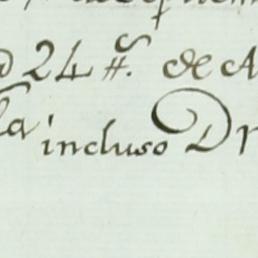 24 #s. de A
la incluso Dr